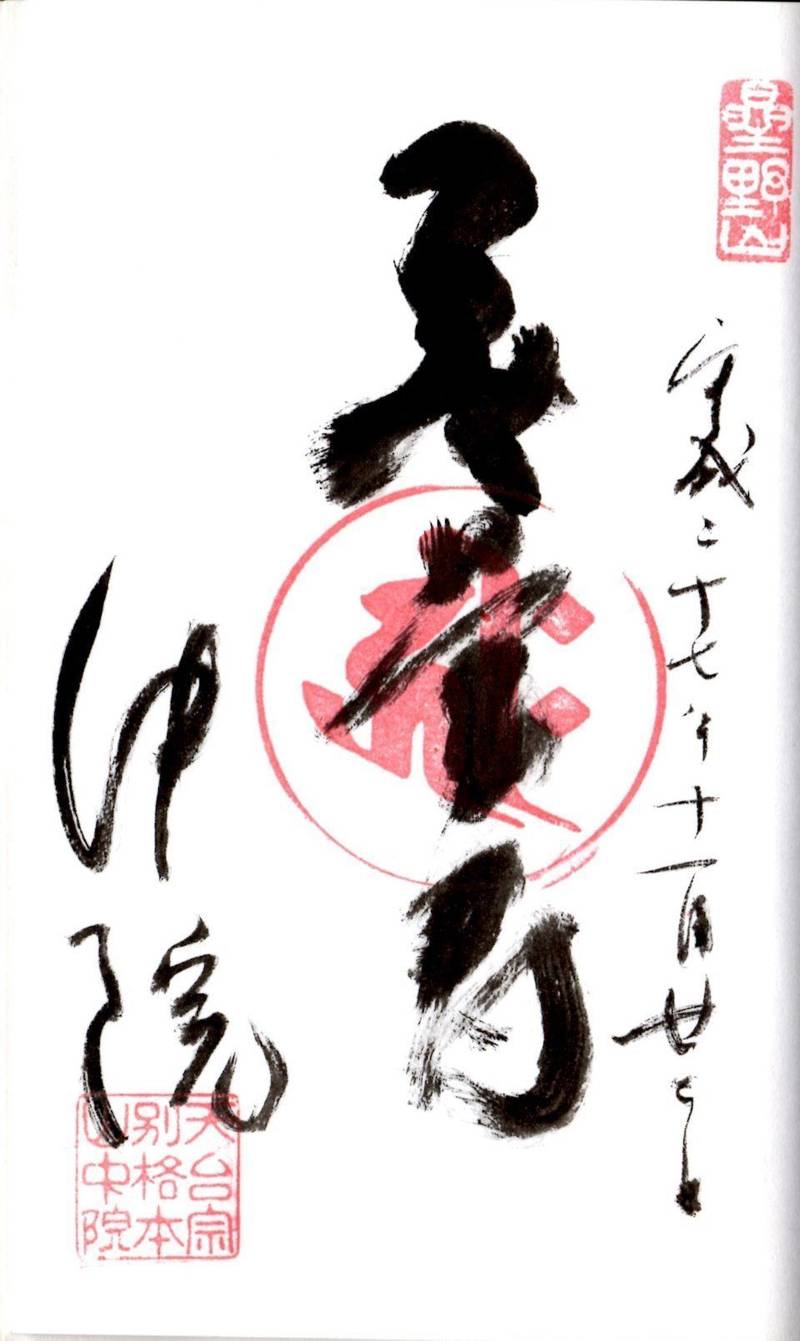 星野山
平成二十七年十一月廿二日
中院
天台宗
別格本
山中院